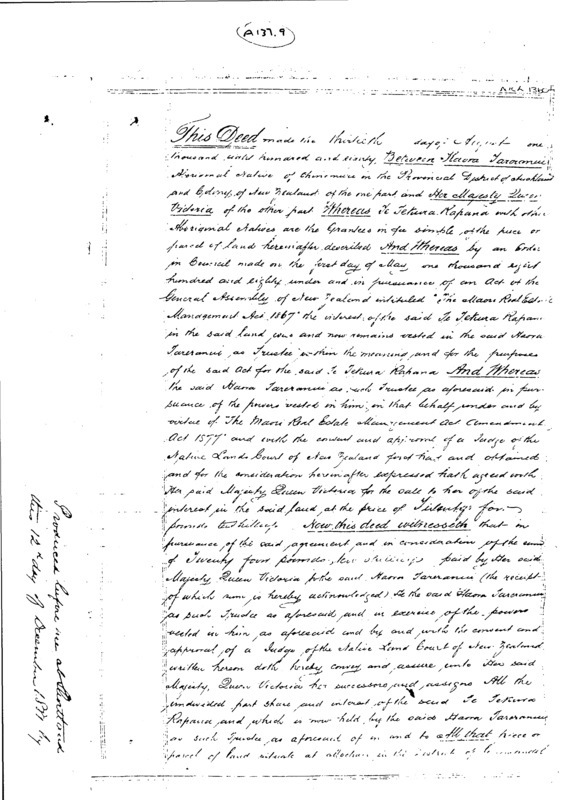 A137.9
This Deed made the thirtieth day of August one
thousand eight hundred and eighty Between Haora Tareranui
Aboriginal Native of Ohinemuri in the Provincial District of Auckland
and Colony of New Zealand of the one part and Her Majesty Queen
Victoria of the other part Whereas Te Tekura Kapana with other
Aboriginal Natives are the Grantees in fee simple of the piece or
parcel of land hereinafter described And Whereas by an Order
in Council made on the first day of May one thousand eight
hundred and eighty under and in pursuance of an Act of the
General Assembly of New Zealand intituled "The Maori Real Estate
Management Act 1867" the interest of the said Te Tekura Kapana
in the said land was and now remains vested in the said Haora
Tareranui as Trustee within the meaning and for the purposes
of the said Act for the said Te Tekura Kapana And Whereas
the said Haora Tareranui as such Trustee as aforesaid in pur-
suance of the powers vested in him in that behalf under and by
virtue of The Maori Real Estate Management Act Amendment
Act 1877 and with the consent and approval of a Judge of the
Native Lands Court of New Zealand first had and obtained
and for the consideration hereinafter expressed hath agreed with
Her said Majesty Queen Victoria for the sale to her of the said
interest in the said land at the price of Twenty four
pounds ten shillings Now this deed witnesseth that in
pursuance of the said agreement and in consideration of the sum
of Twenty four pounds ten shillings paid by Her said
Majesty Queen Victoria to the said Haora Tareranui (the receipt
of which sum is hereby acknowledged) He the said Haora Tareranui
as such Trustee as aforesaid and in exercise of the powers
vested in him as aforesaid and by and with the consent and
approval of a Judge of the Native Land Court of New Zealand
written hereon doth hereby convey and assure unto Her said
Majesty Queen Victoria her successors and assigns All the
undivided part share and interest of the said Te Tekura
Kapana and which is now held by the said Haora Tareranui
as such Trustee as aforesaid of in and to All that piece or
parcel of land situate at in the District of Coromandel
Produced before me at
this 12th day of December by